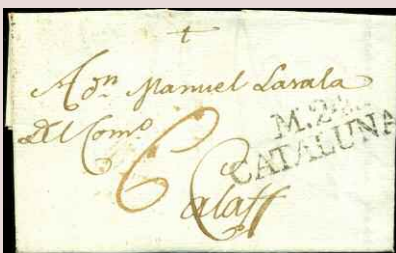 A dn Manuel Lasala
Del Como
M.24
CATALUNA
6
Calaff